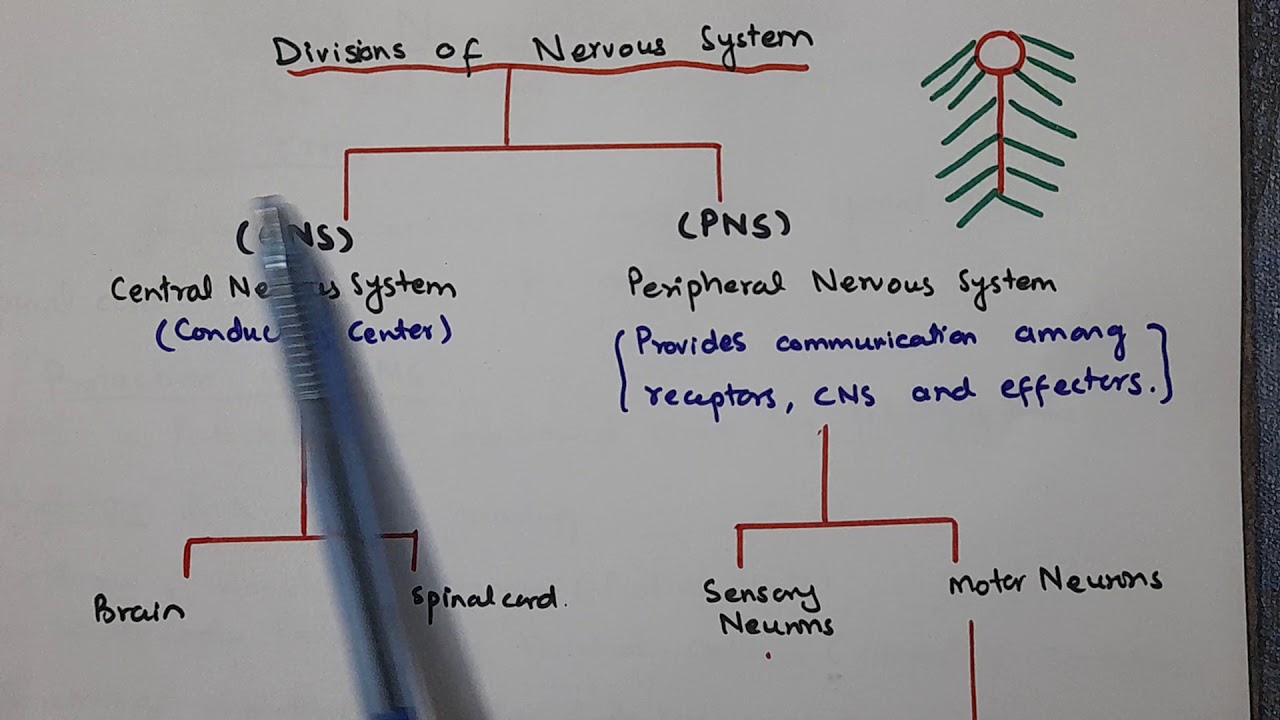 Divisions of Nervous System
(PNS)
Central System
Peripheral Nervous System
center)
Provides communication among
receptors, CNS and effectors.
Brain
Spinal cord.
Sensory
Neurons
Motor Neurons